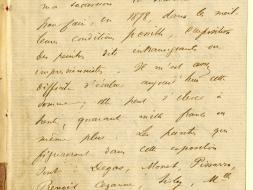 ma succession
pour faire, en 1878, dans le meil
leur condition possible, l'exposition
des peintres dits intransigeants ou
impressionnistes. Il m'est
difficile d'évaluer aujourd'hui cette
somme; elle peut s'élever à
trente, quarante mille francs ou
même plus. Les peintres qui
figureront dans cette exposition
sont: Degas, Monet, Pissarro,
Renoir, Cézanne, Sisley, Mlle